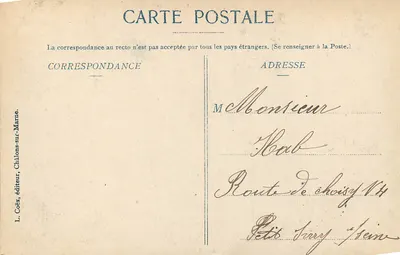 CARTE POSTALE
La correspondance au recto n'est pas acceptée par tous les pays étrangers. (Se renseigner à la Poste.)
CORRESPONDANCE
ADRESSE
M Monsieur
Hab
Route de choisy N4
Petit Ivry s/seine
L. Coëx, éditeur, Châlons-sur-Marne.